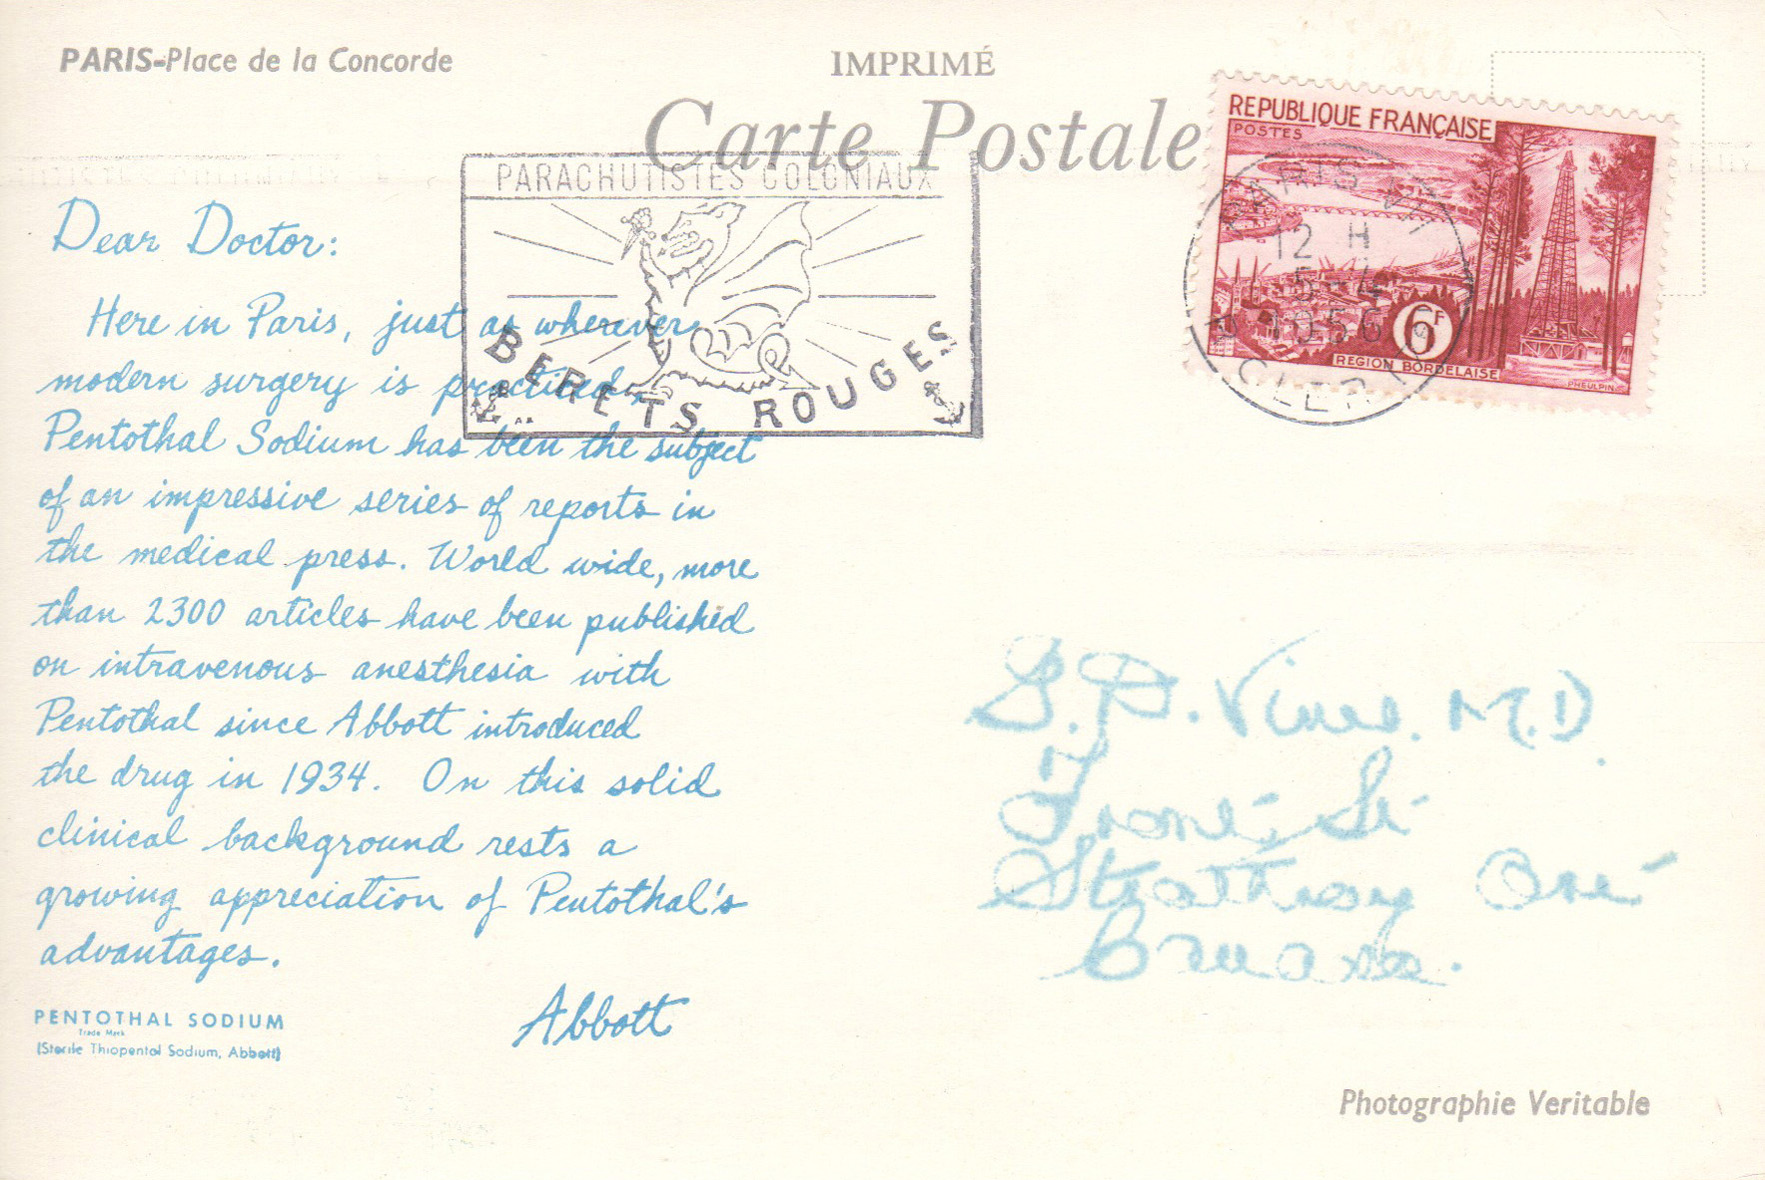 PARIS-Place de la Concorde
IMPRIMÉ
Carte Postale
REPUBLIQUE FRANÇAISE
POSTES
6F
REGION BORDELAISE
PHEULPIN
PARIS VII
12 H
5-4
1956
CLER
PARACHUTISTES COLONIAUX
BERETS ROUGES
Dear Doctor:
Here in Paris, just as wherever
modern surgery is practiced,
Pentothal Sodium has been the subject
of an impressive series of reports in
the medical press. World wide, more
than 2300 articles have been published
on intravenous anesthesia with
Pentothal since Abbott introduced
the drug in 1934. On this solid
clinical background rests a
growing appreciation of Pentothal's
advantages.
Abbott
PENTOTHAL SODIUM
Trade Mark
(Sterile Thiopental Sodium, Abbott)
M.D.
Front St
Strathroy Ont
Photographie Veritable